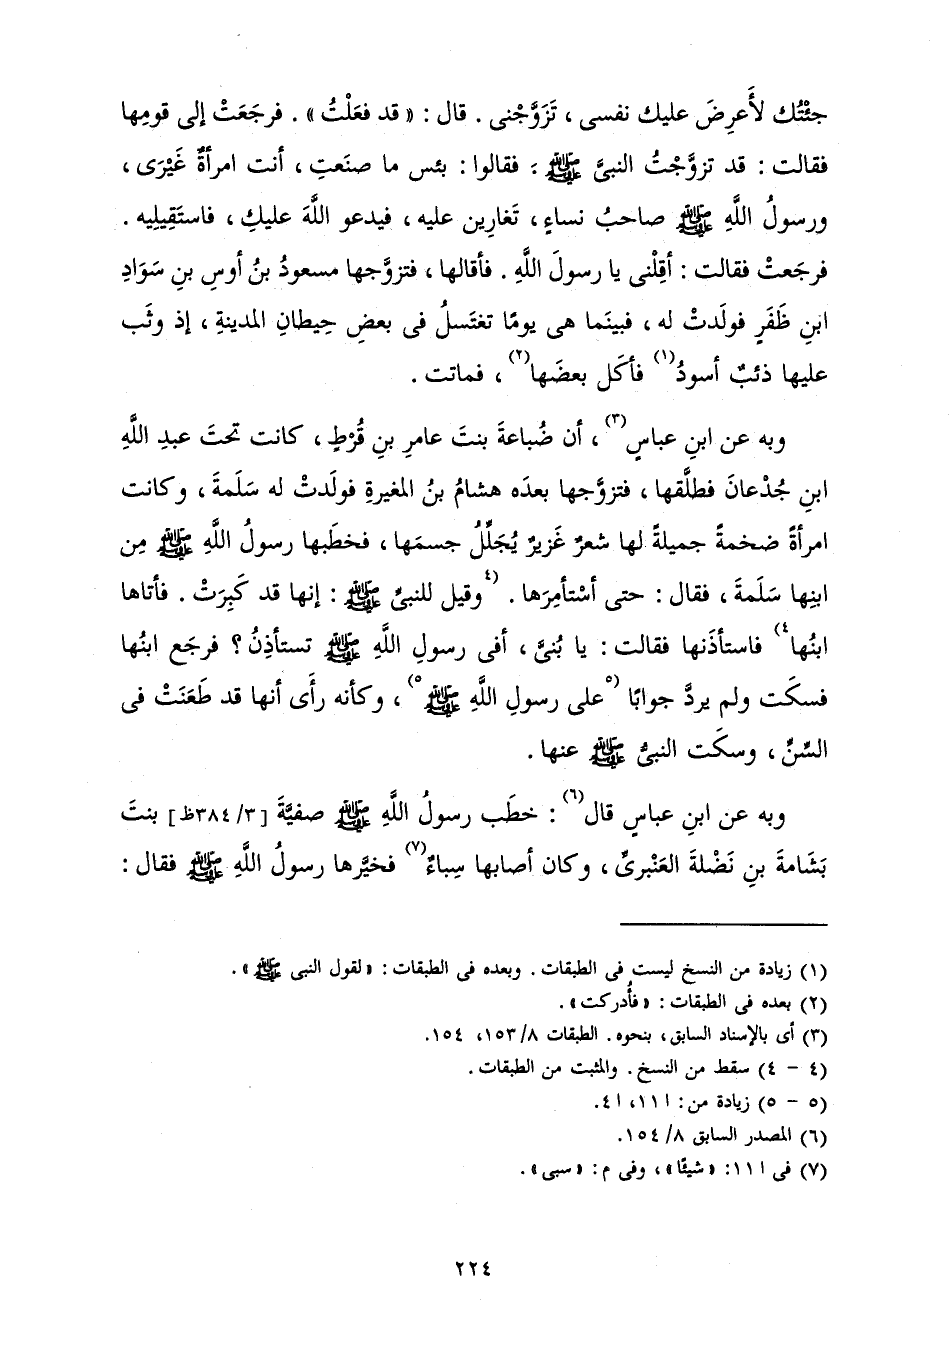 جئْتُك لأَعرِضَ عليك نفسى ، تَزَوَّجْنى . قال : « قد فعَلْتُ » . فرجَعَتْ إلى قومِها
فقالت : قد تزوَّجْتُ النبىَّ ﷺ . فقالوا : بئس ما صنَعتِ ، أنت امرأةٌ غَيْرَى ،
ورسولُ اللَّهِ ﷺ صاحبُ نساءٍ ، تَغارِين عليه ، فيدعو اللَّهَ عليكِ ، فاستَقِيلِيه .
فرجَعتْ فقالت : أقِلْنى يا رسولَ اللَّهِ . فأقالها ، فتزوَّجها مسعودُ بنُ أوسِ بنِ سَوَادِ
ابنِ ظَفَرٍ فولَدتْ له ، فبينَما هى يومًا تغتَسلُ فى بعضِ حِيطانِ المدينةِ ، إذ وثَب
عليها ذئبٌ أسودُ(١) فأكَل بعضَها(٢) ، فماتت .
وبه عن ابنِ عباسٍ(٣) ، أن ضُباعةَ بنتَ عامرِ بنِ قُرْطٍ ، كانت تحتَ عبدِ اللَّهِ
ابنِ جُدْعانَ فطلَّقها ، فتزوَّجها بعدَه هشامُ بنُ المغيرةِ فولَدتْ له سَلَمةَ ، وكانت
امرأةً ضخمةً جميلةً لها شعرٌ غَزيرٌ يُجَلِّلُ جسمَها ، فخطَبها رسولُ اللَّهِ ﷺ مِن
ابنِها سَلَمةَ ، فقال : حتى أسْتأمِرَها . (٤وقيل للنبىِّ ﷺ : إنها قد كَبِرَتْ . فأتاها
ابنُها٤) فاستأذَنها فقالت : يا بُنىَّ ، أفى رسولِ اللَّهِ ﷺ تستأذِنُ ؟ فرجَع ابنُها
فسكَت ولم يردَّ جوابًا (٥على رسولِ اللَّهِ ﷺ٥) ، وكأنه رأَى أنها قد طَعَنَتْ فى
السِّنِّ ، وسكَت النبىُّ ﷺ عنها .
وبه عن ابنِ عباسٍ قال(٦) : خطَب رسولُ اللَّهِ ﷺ صفيَّةَ [٣/ ٣٨٤ظ] بنتَ
بَشَامةَ بنِ نَضْلةَ العَنْبرىِّ ، وكان أصابها سِباءٌ(٧) فخيَّرها رسولُ اللَّهِ ﷺ فقال :
(١) زيادة من النسخ ليست فى الطبقات . وبعده فى الطبقات : « لقول النبى ﷺ » .
(٢) بعده فى الطبقات : « فأُدركت » .
(٣) أى بالإسناد السابق ، بنحوه . الطبقات ٨/ ١٥٣، ١٥٤.
(٤ - ٤) سقط من النسخ . والمثبت من الطبقات .
(٥ - ٥) زيادة من : ١١١، ٤١.
(٦) المصدر السابق ٨/ ١٥٤.
(٧) فى ١١١: « شيئًا » ، وفى م : « سبى » .
٢٢٤